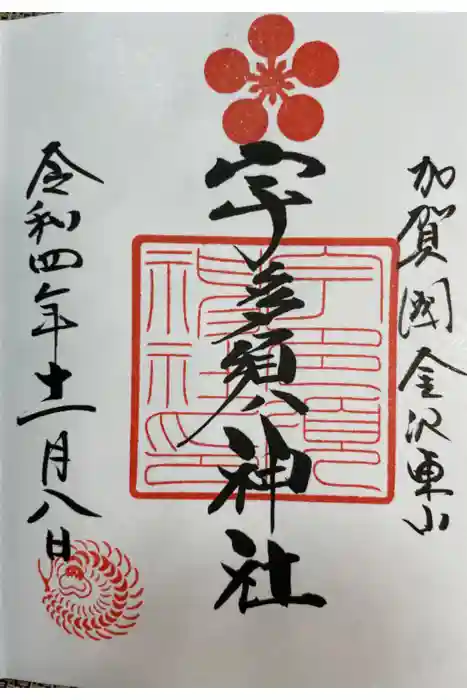 加賀國金沢東山
宇多須神社
令和四年十一月八日